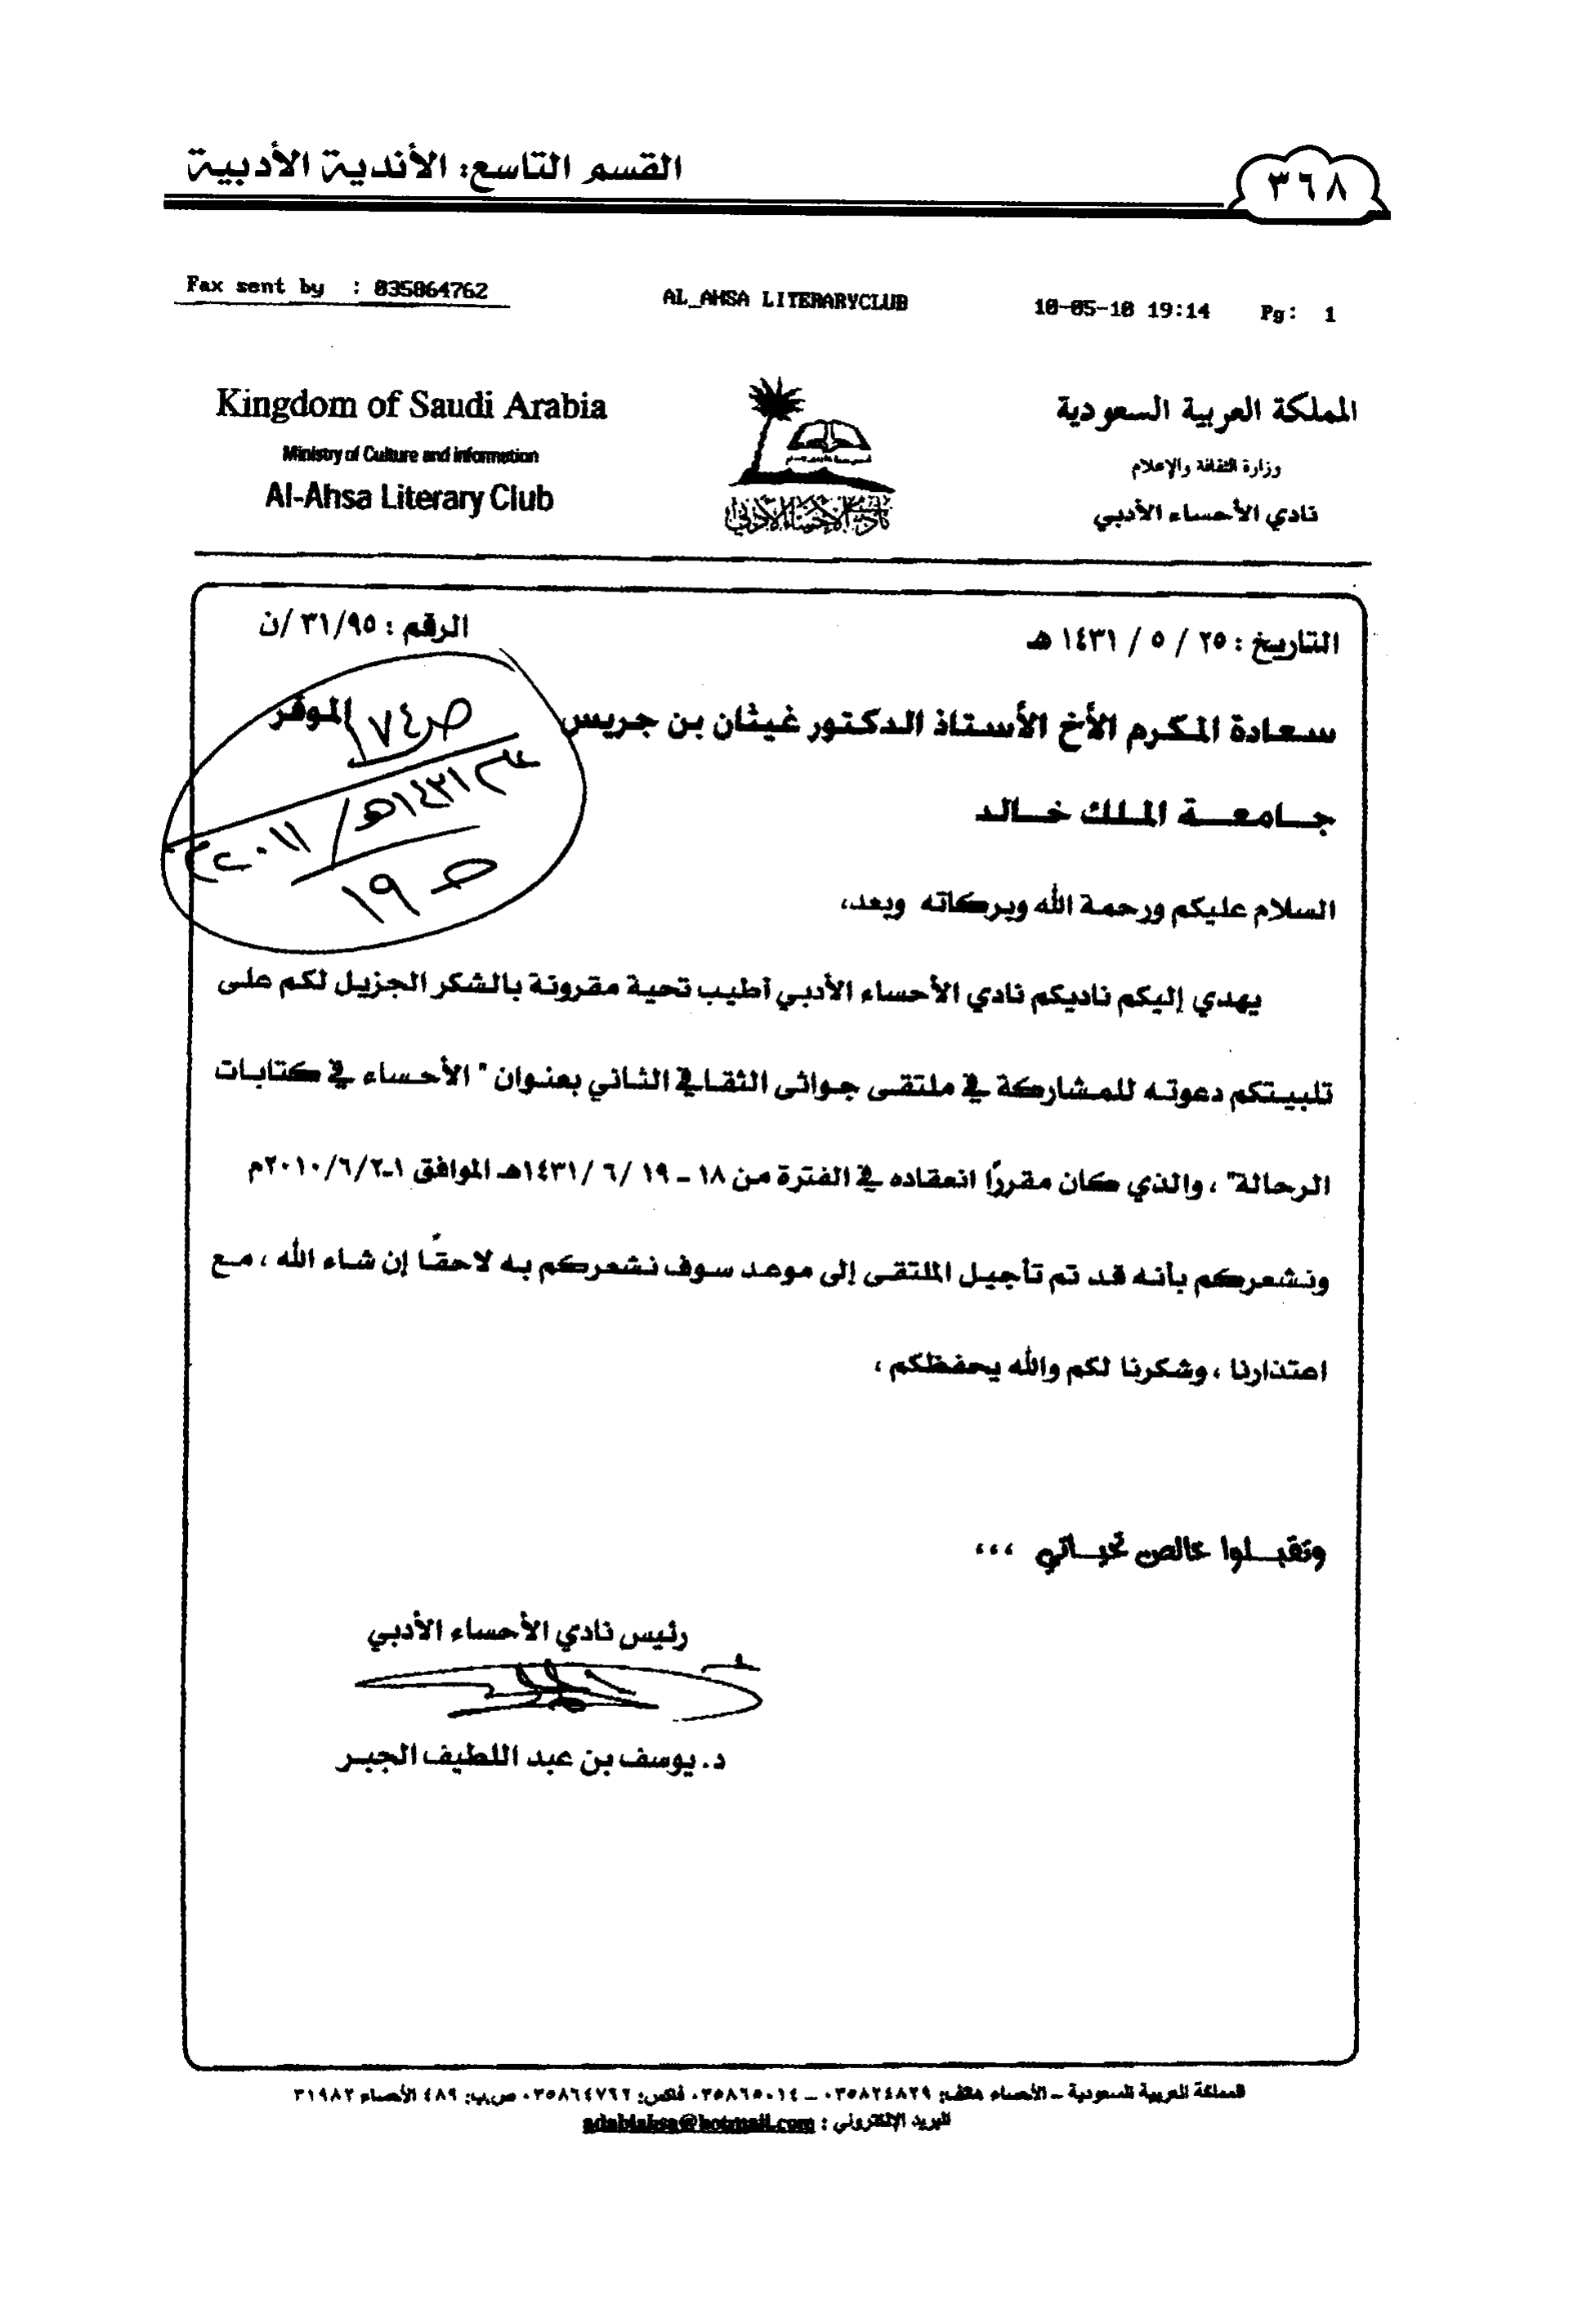 القسم التاسع: الأندية الأدبية
٣٦٨
Fax sent by : 035864762 AL_AHSA LITERARYCLUB 10-05-10 19:14 Pg: 1
Kingdom of Saudi Arabia
Ministry of Culture and information
Al-Ahsa Literary Club
نادي الأحساء الأدبي
المملكة العربية السعودية
وزارة الثقافة والإعلام
نادي الأحساء الأدبي
التاريخ : ٢٥ / ٥ / ١٤٣١ هـ
الرقم : ٣١/٩٥ /ن
سعادة المكرم الأخ الأستاذ الدكتور غيثان بن جريس الموقر
ص ٧٤
١٤٣١هـ / ٢٠١١م
ص ١٩
جامعة الملك خالد
السلام عليكم ورحمة الله وبركاته وبعد،
يهدي إليكم ناديكم نادي الأحساء الأدبي أطيب تحية مقرونة بالشكر الجزيل لكم على
تلبيتكم دعوته للمشاركة في ملتقى جواثى الثقافي الثاني بعنوان " الأحساء في كتابات
الرحالة" ، والذي كان مقررًا انعقاده في الفترة من ١٨ - ١٩ /٦ /١٤٣١هـ الموافق ١-٢/٦/٢٠١٠م
ونشعركم بأنه قد تم تأجيل الملتقى إلى موعد سوف نشعركم به لاحقًا إن شاء الله ، مع
اعتذارنا ، وشكرنا لكم والله يحفظكم ،
وتقبلوا خالص تحياتي ،،،
رئيس نادي الأحساء الأدبي
د. يوسف بن عبد اللطيف الجبر
المملكة العربية السعودية – الأحساء هاتف: ٠٣٥٨٢٤٨٢٩ – ٠٣٥٨٦٥٠١٤ فاكس: ٠٣٥٨٦٤٧٦٢ ص.ب: ٤٨٩ الأحساء ٣١٩٨٢
البريد الإلكتروني : adabiahsa@hotmail.com